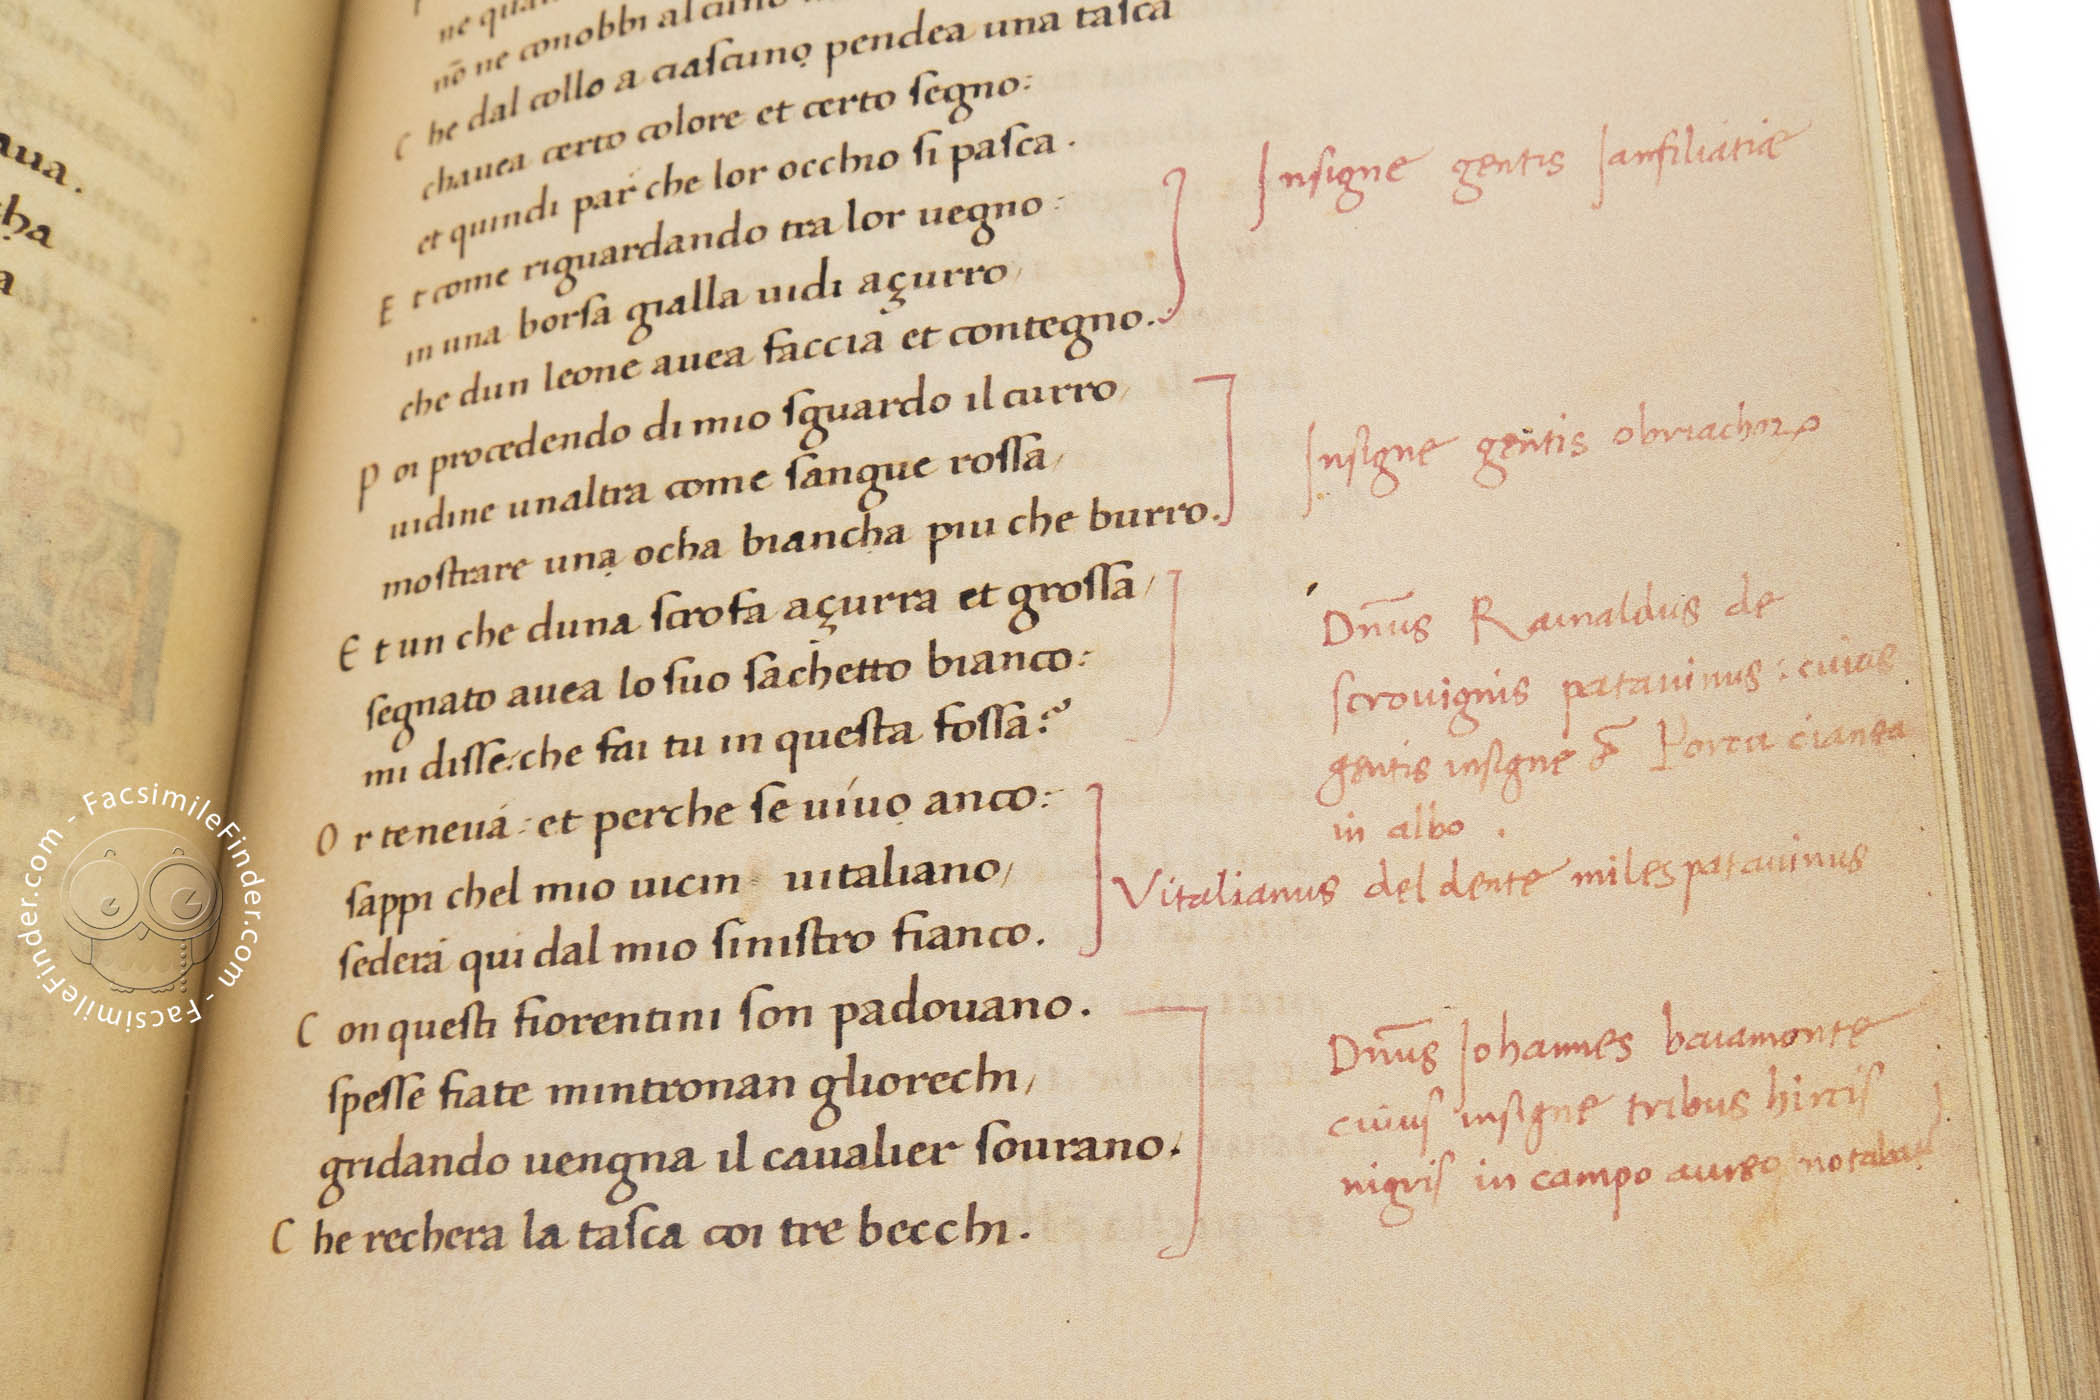 aua.
cha
a
ne
nō ne conobbi alcuno
C he dal collo a ciascuno pendea una tasca
chauea certo colore et certo segno:
et quindi par che lor occhio si pasca.
E t come riguardando tra lor uegno:
in una borsa gialla uidi açurro/
che dun leone auea faccia et contegno.
P oi procedendo di mio sguardo il curro/
uidine unaltra come sangue rossa/
mostrare una ocha biancha piu che burro.
E t un che duna scrofa açurra et grossa/
segnato auea lo suo sachetto bianco:
mi disse: che fai tu in questa fossa?
O r te neua: et perche se uiuo anco:
sappi chel mio uicin uitaliano/
sedera qui dal mio sinistro fianco.
C on questi fiorentini son padouano.
spesse fiate mintronan gliorechi/
gridando uengna il caualier sourano.
C he rechera la tasca coi tre becchi.
Insigne gentis Ianfiliatiæ
Insigne gentis obriachoꝝ
Dn̄us Rainaldus de
scrouignis patauinus: cuius
gentis insigne Porca cianea
in albo.
Vitalianus del dente miles patauinus
Dn̄us Iohannes baiamonte
cuius insigne tribus hircis
nigris in campo aureo
FacsimileFinder.com - FacsimileFinder.com -